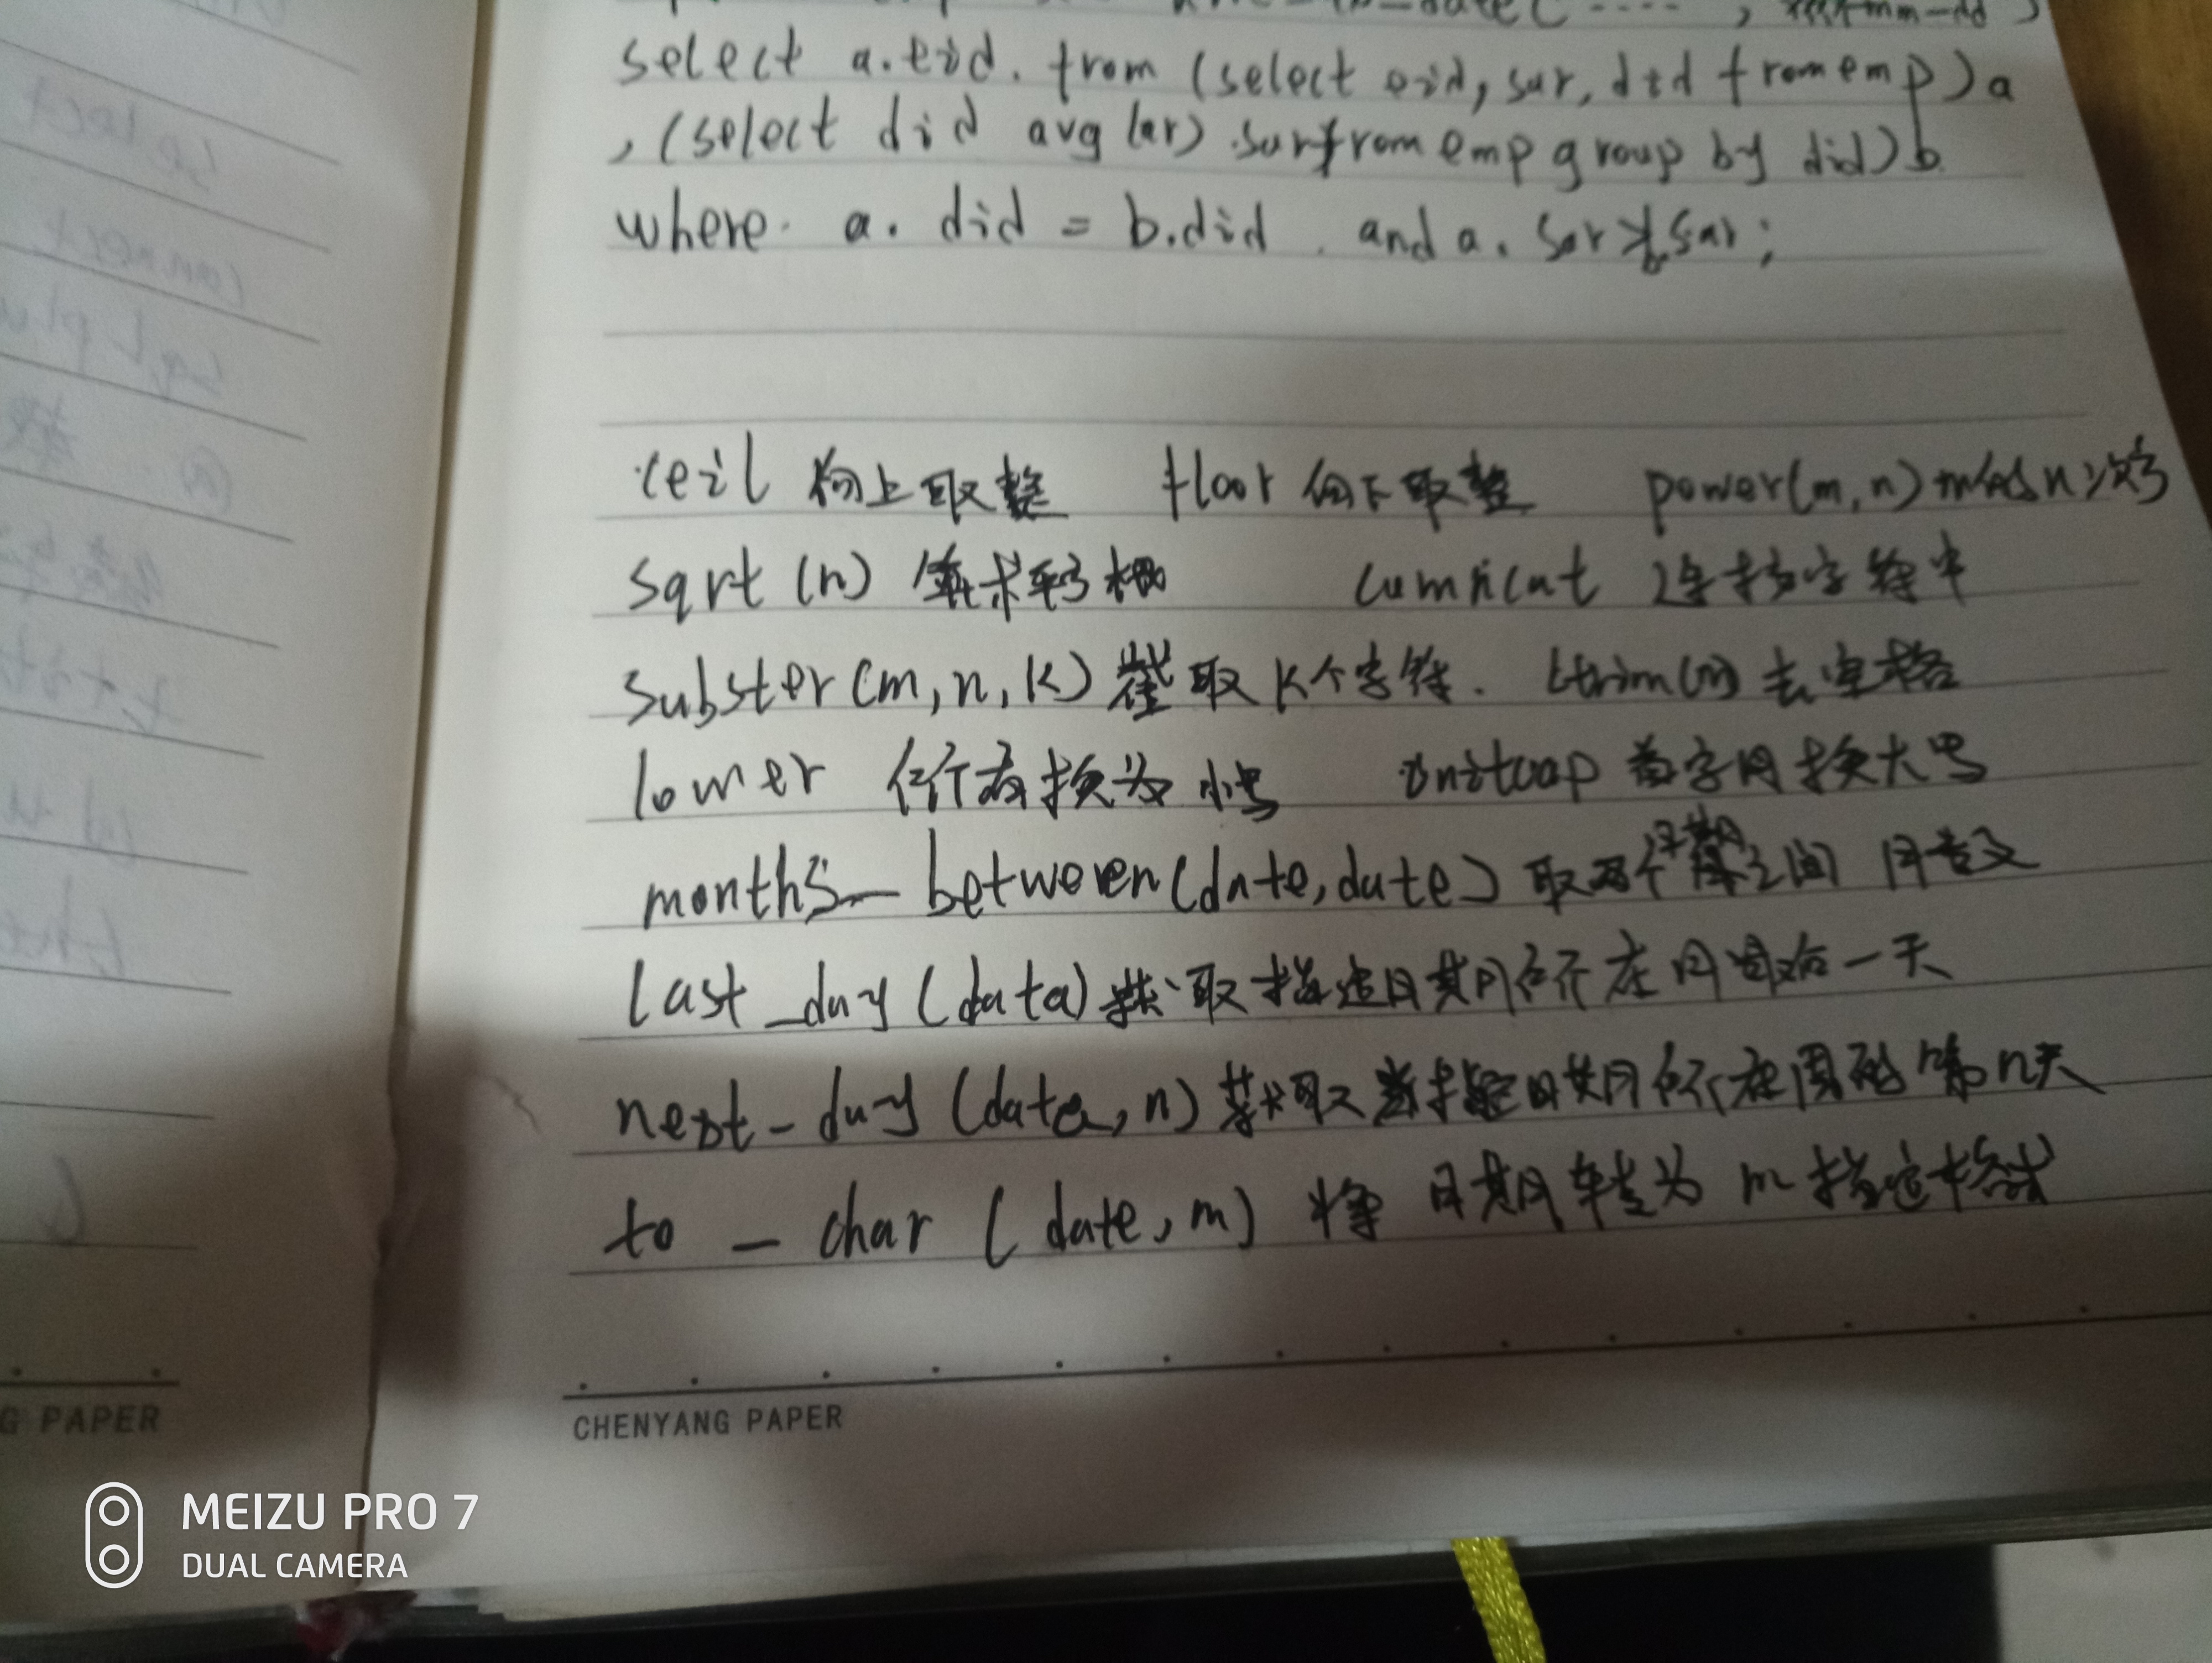 select a.eid. from (select eid, sar, did from emp) a
, (select did avg (ar) sar from emp group by did) b
where a. did = b.did and a. sar > b.sar;
ceil 向上取整 floor 向下取整 power(m, n) m的n次方
sqrt (n) 求平方根 concat 连接字符串
subster(m, n, k) 截取 k个字符. ltrim(n) 去空格
lower 所有换为小写 initcap 首字母换大写
months_between(date, date) 取两个日期之间 月数
last_day (data) 获取指定日期所在月最后一天
next_day (data, n) 获取当指定日期所在周的第n天
to_char ( date, m) 将 日期转为 m 指定格式
CHENYANG PAPER
G PAPER
MEIZU PRO 7
DUAL CAMERA